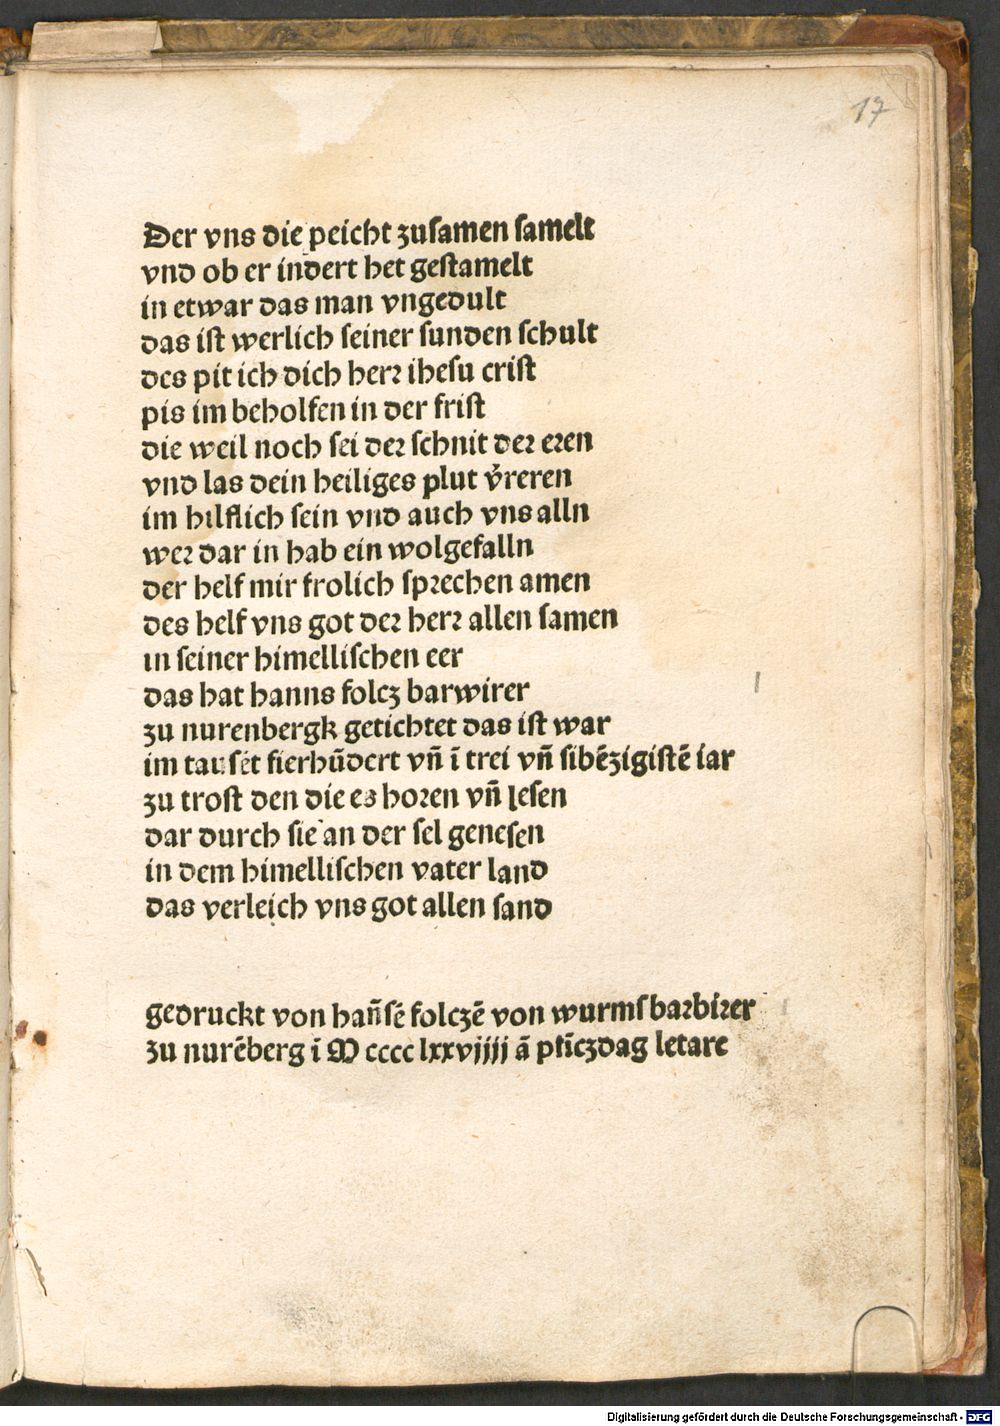 17
Der vns die peicht zuſamen ſamelt
vnd ob er indert het geſtamelt
in etwar das man vngedult
das iſt werlich ſeiner ſunden ſchult
des pit ich dich herꝛ iheſu criſt
pis im beholfen in der friſt
die weil noch ſei deꝛ ſchnit deꝛ eren
vnd las dein heiliges plut v̄reren
im hilflich ſein vnd auch vns alln
weꝛ dar in hab ein wolgefalln
der helf mir frolich ſpꝛechen amen
des helf vns got deꝛ herꝛ allen ſamen
in ſeiner himelliſchen eer
das hat hanns folcz barwirer
zu nurenbergk getichtet das iſt war
im tauſēt fierhūdert vn̄ ī trei vn̄ ſibēzigiſtē iar
zu troſt den die es horen vn̄ leſen
dar durch ſie an der ſel geneſen
in dem himelliſchen vater land
das verleich vns got allen ſand
gedruckt von han̄ſē folczē von wurmſ baꝛbiꝛer
zu nurēberg ī M cccc lxxvjjjj ā pfīczdag letare
Digitalisierung gefördert durch die Deutsche Forschungsgemeinschaft - DFG